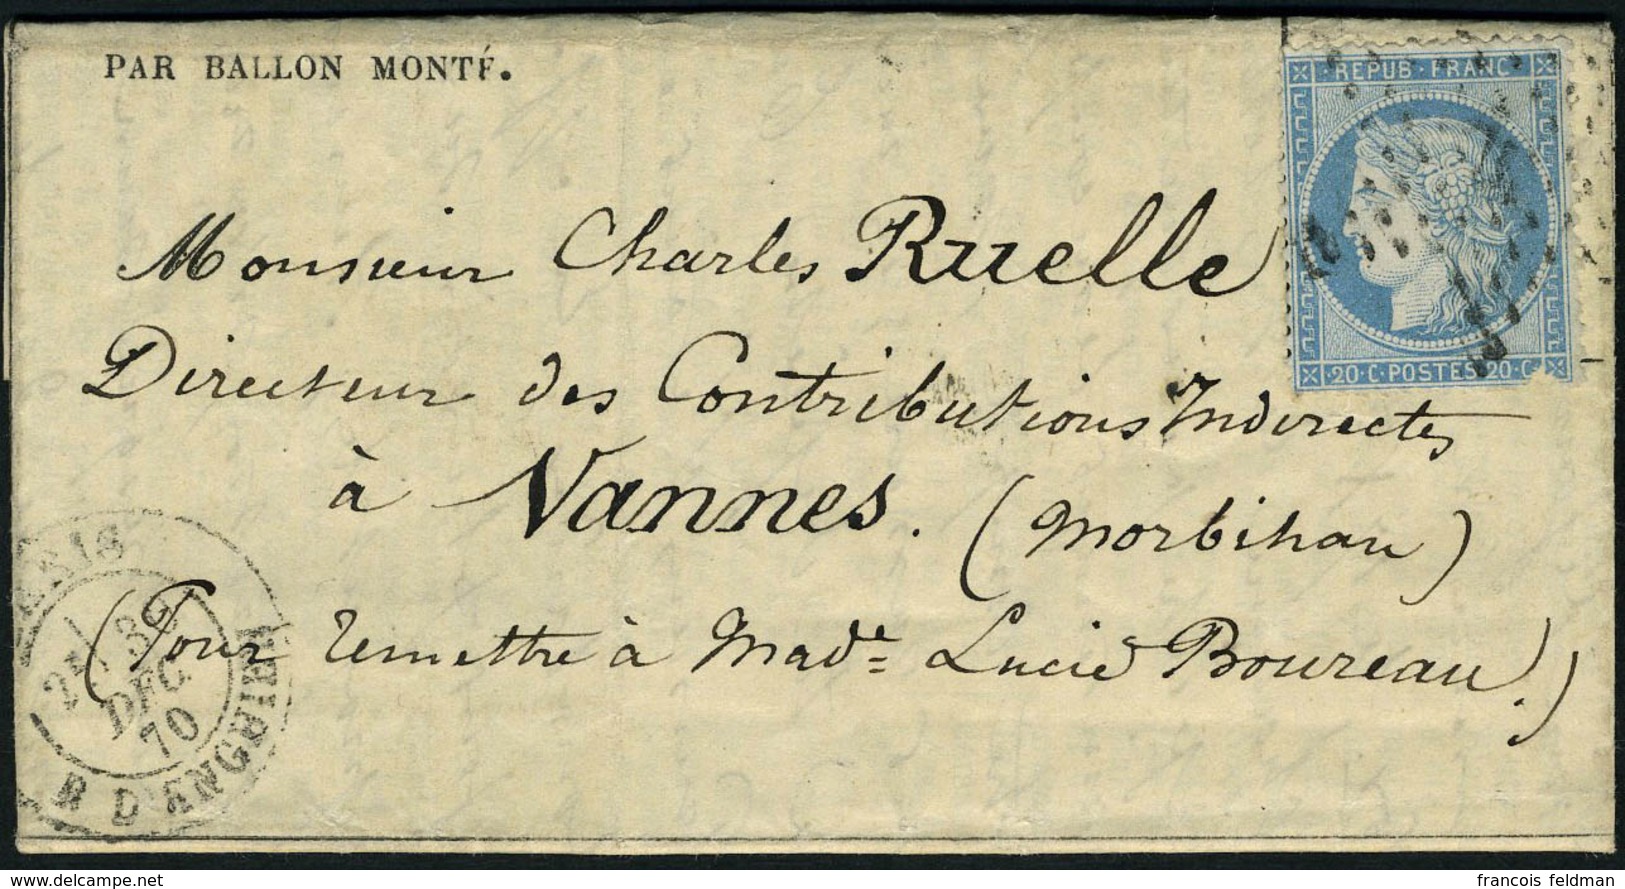 PAR BALLON MONTÉ.
REPUB. FRANC
20 C POSTES 20 C
Monsieur Charles Ruelle
Directeur des Contributions Indirectes
à Vannes. (Morbihan)
(Pour remettre à Made Lucie Boureau.)
DEC.
70
R D'ENGHIEN
delcampe.net
francois feldman